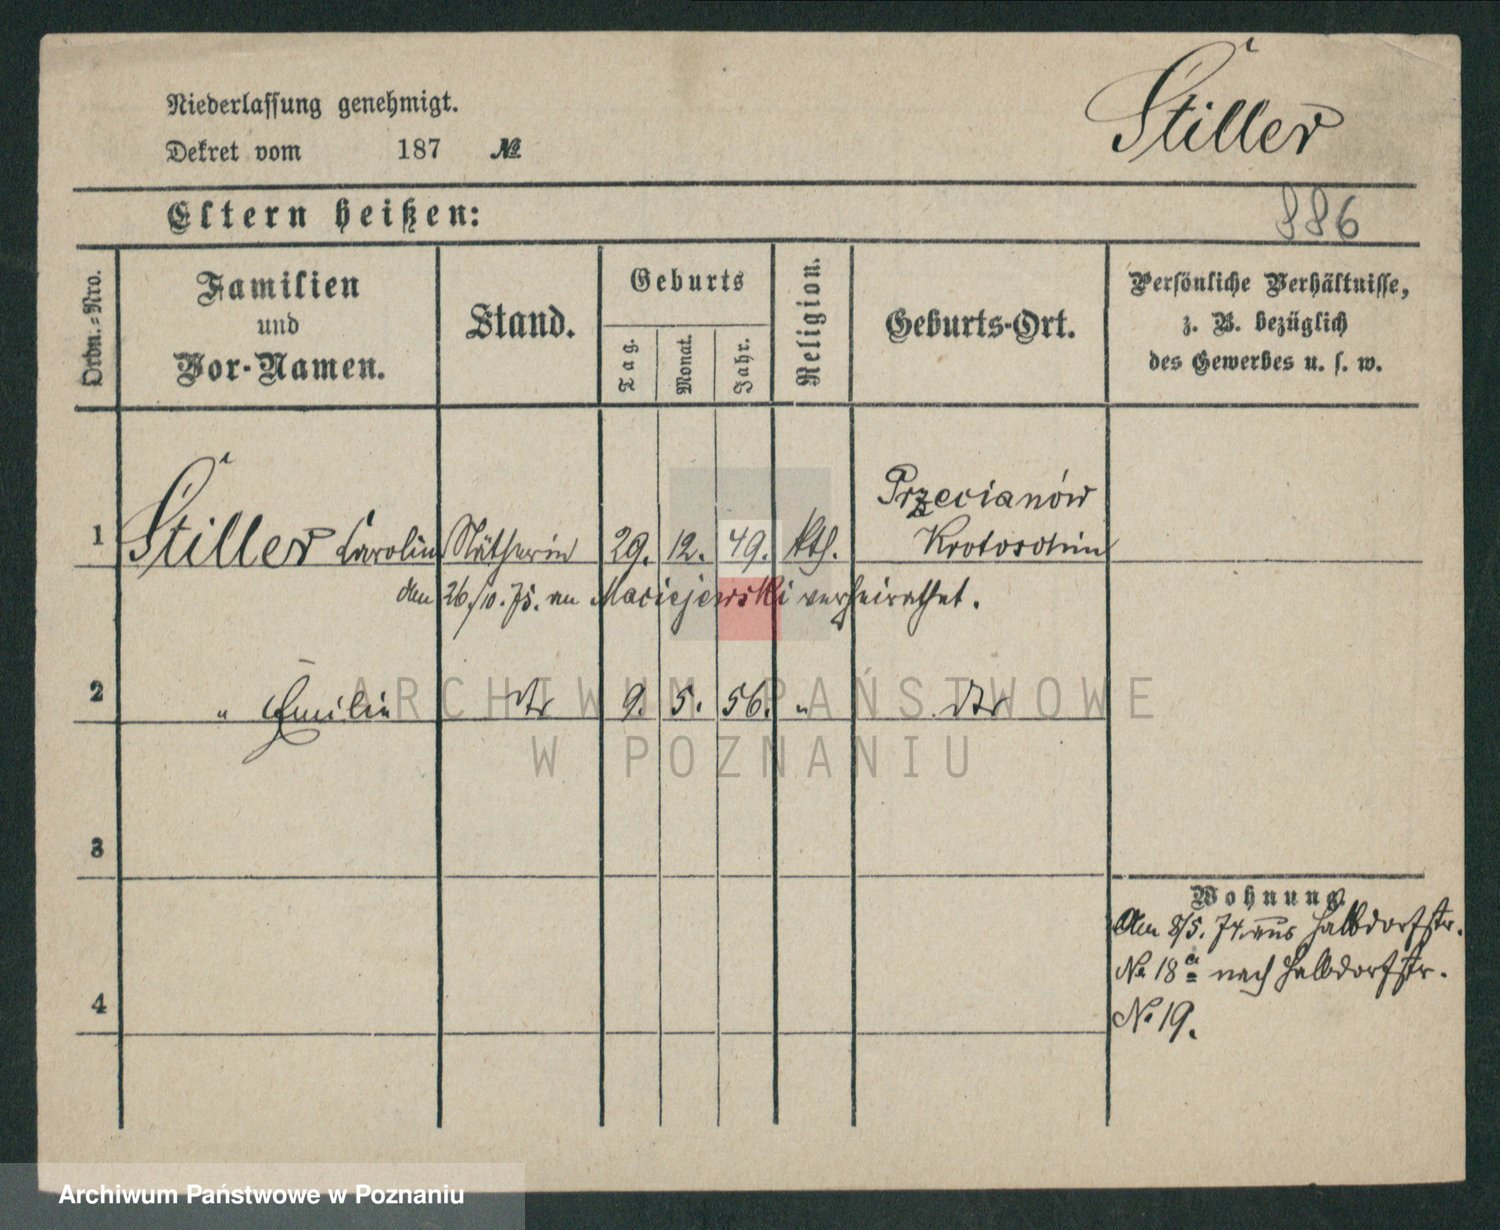 Niederlassung genehmigt.
Dekret vom 187 №
Stiller
Eltern heißen:
886
Ordn.-Nro.
Familien
und
Vor-Namen.
Stand.
Geburts
Tag.
Monat.
Jahr.
Religion.
Geburts-Ort.
Persönliche Verhältnisse,
z. B. bezüglich
des Gewerbes u. s. w.
1 Stiller Carolin Nätherin 29. 12. 49. kth. Przecianów
Krotoschin
den 26./10. 75. an Maciejewski verheirathet.
2 " Emilie dto 9. 5. 56. " dto
3
4
Wohnung
Am 8/5. 74. aus Halbdorfstr.
No 18a nach Halbdorfstr.
No 19.
ARCHIWUM PAŃSTWOWE
W POZNANIU
Archiwum Państwowe w Poznaniu